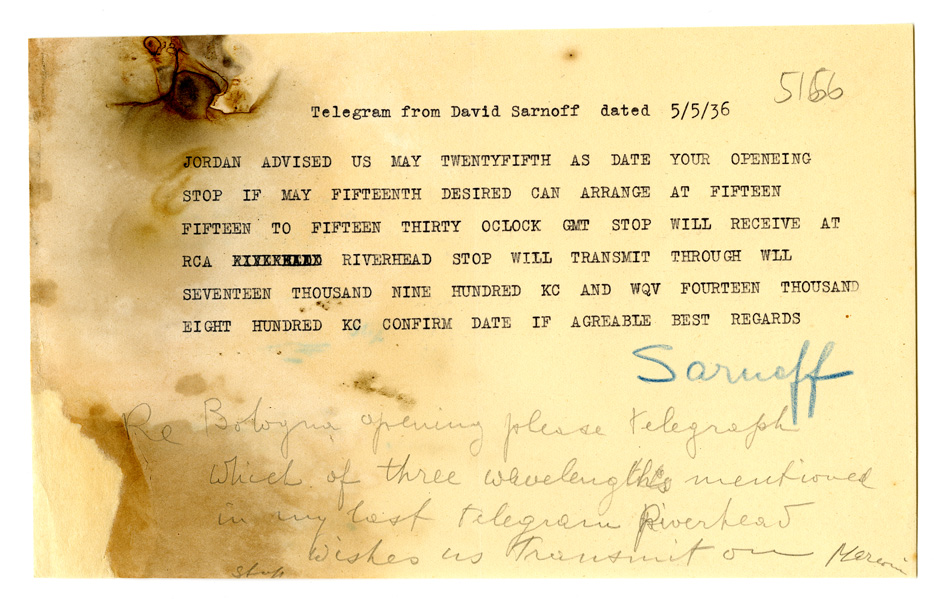 5/5/36
Telegram from David Sarnoff dated 5/5/36
JORDAN ADVISED US MAY TWENTYFIFTH AS DATE YOUR OPENEING
STOP IF MAY FIFTEENTH DESIRED CAN ARRANGE AT FIFTEEN
FIFTEEN TO FIFTEEN THIRTY OCLOCK GMT STOP WILL RECEIVE AT
RCA RIVERHEAD STOP WILL TRANSMIT THROUGH WLL
SEVENTEEN THOUSAND NINE HUNDRED KC AND WQV FOURTEEN THOUSAND
EIGHT HUNDRED KC CONFIRM DATE IF AGREABLE BEST REGARDS
Sarnoff
Re Bologna opening please telegraph
which of three wavelengths mentioned
in my last telegram Riverhead
wishes us transmit on
stop